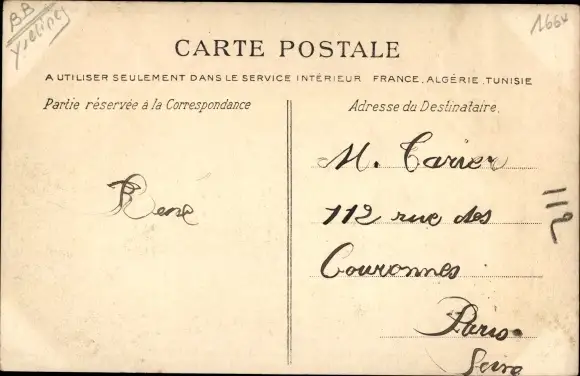 BB
Yveline
1664
CARTE POSTALE
A UTILISER SEULEMENT DANS LE SERVICE INTÉRIEUR FRANCE, ALGÉRIE, TUNISIE
Partie réservée à la Correspondance
Adresse du Destinataire.
René
M. Carier
112 rue des
Couronnes
Paris
Seine
112